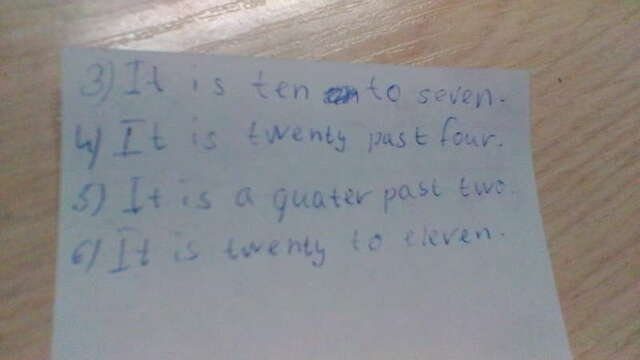 3) It is ten to seven.
4) It is twenty past four.
5) It is a quater past two.
6) It is twenty to eleven.